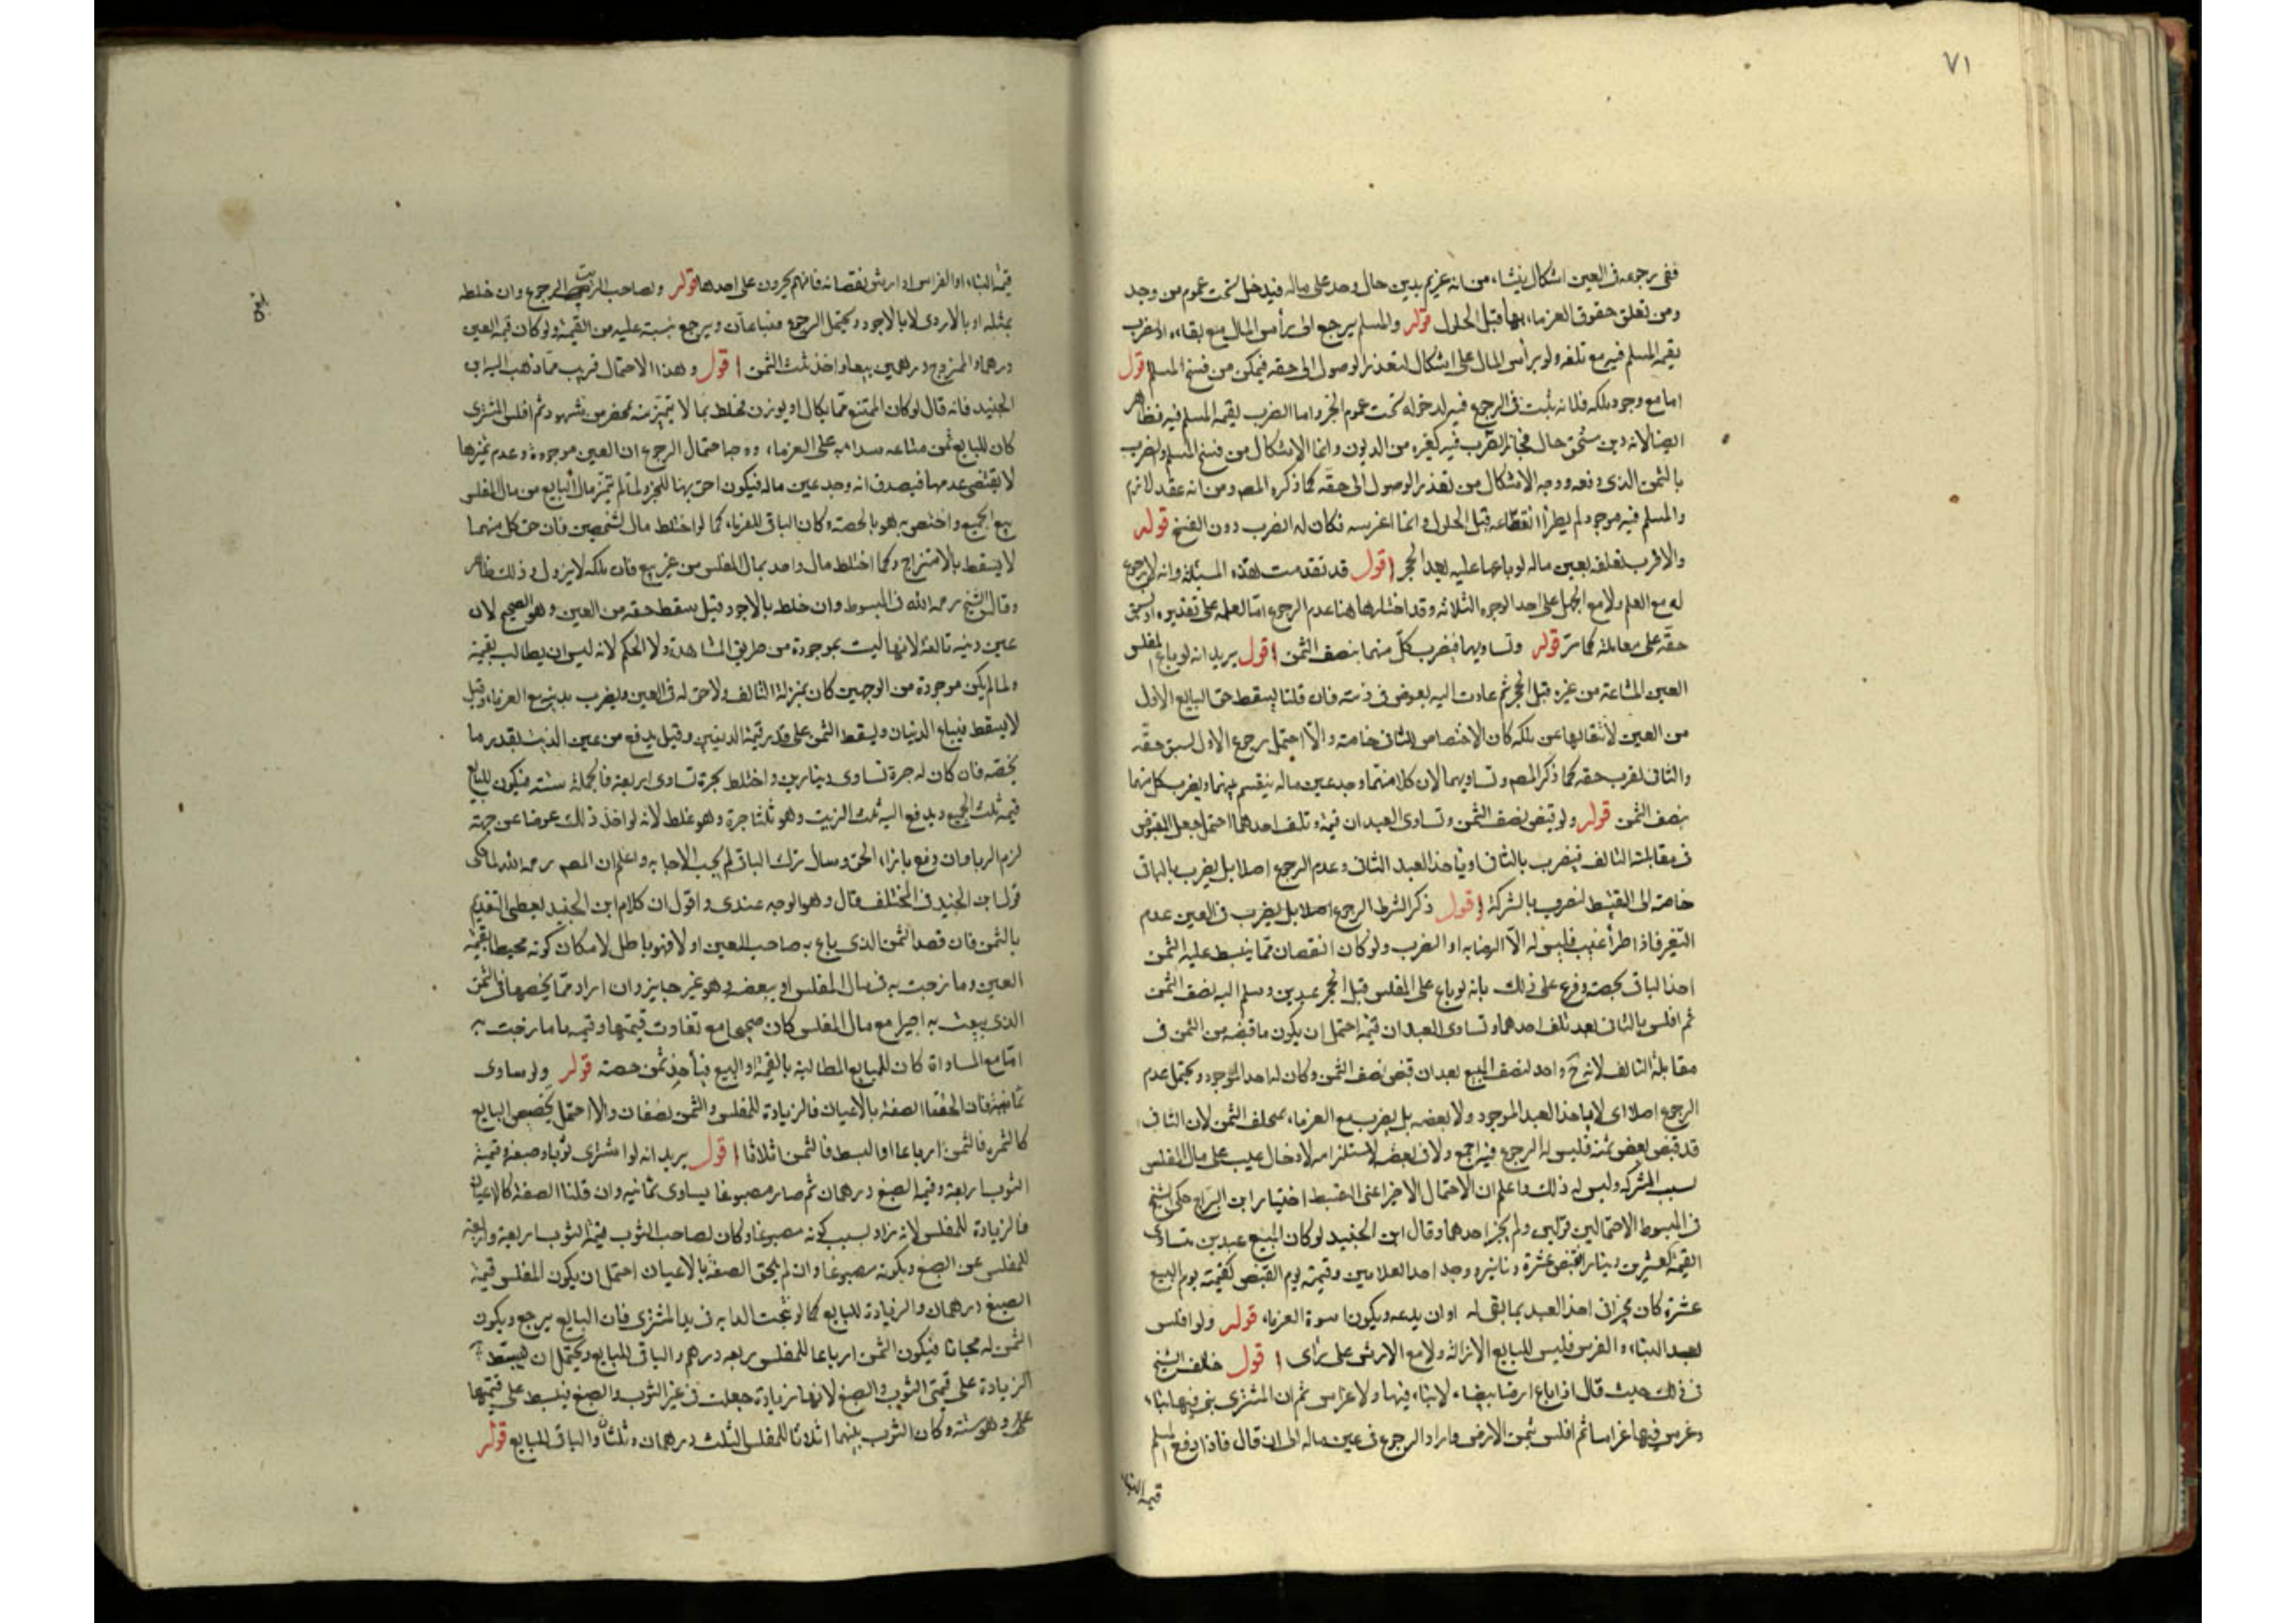 ٧١
ففى رجوعه فى العين اشكال ينشاء من انه غريم بدين حال وحد على ماله فيدخل تحت عموم من وجد
ومن تعلق حقوق الغرماء بها قبل الحلول قوله والمسلم يرجع الى رأس المال مع بقاءه او الضرب
بقيمة المسلم فيه مع تلفه ولو برأس المال على اشكال لتعذر الوصول الى حقه فيمكن من فسخ المسلم اقول
اما مع وجود ملكه فلانه يثبت فى الرجوع فيه لدخوله تحت عموم الخبر واما الضرب بقيمة المسلم فيه فظاهر
ايضا لانه دين مستحق حال فجاز الضرب فيه كغيره من الديون وانما الاشكال من فسخ المسلم والضرب
بالثمن الذى دفعه ووجه الاشكال من تعذر الوصول الى حقه كما ذكره المصه ومن انه عقد لازم
والمسلم فيه موجود لم يطرأ انقطاعه قبل الحلول وانما اعتريسه فكان له الضرب دون الفسخ قوله
والاقرب تعلقه بعين ماله لو باعها عليه بعد الحجر اقول قد تقدمت هذه المسئلة وانه لا رجوع
له مع العلم ولا مع الجهل على احد الوجوه الثلاثة وقد اختارها هنا عدم الرجوع امّا لعلمه على تقديره او لسبق
حقه على معاملته كما مرّ قوله وتساويهما فيضرب كل منهما بنصف الثمن اقول يريد انه لو باع المفلس
العين المتاعة من غيره قبل الحجر ثم عادت اليه بعوض فى ذمته فان قلنا يسقط حق البايع الاول
من العين لانتقالها عن ملكه كان الاختصاص للثانى خاصة والّا احتمل رجوع الاول لسبق حقه
والثانى لقرب حقه كما ذكر المصه وتساويهما لان كلا منهما وجد عين ماله فيقسم بينهما ويضرب كل منهما
بنصف الثمن قوله ولو قبض نصف الثمن وتساوى العبدان قيمة وتلف احدهما احتمل جعل المقبوض
فى مقابلة التالف فيضرب بالثانى او ياخذ العبد الثانى وعدم الرجوع اصلا بل يضرب بالباقى
خاصة الى القسط لضرب بالشركة اقول ذكر الشرط الرجوع اصلا بل يضرب فى العين عدم
التغير فاذا طرأ عيب فليس له الّا الرضا به او الضرب ولو كان النقصان ممّا يتبسط عليه الثمن
اخذ الباقى بحصته وفرع على ذلك بانه لو باع على المفلس قبل الحجر عبدين وسلم اليه نصف الثمن
ثم افلس بالثانى بعد تلف احدهما وتساوى العبدان قيمة احتمل ان يكون ما قبضه من الثمن فى
مقابلة التالف لانه ح واحد لنصف المبيع بعد ان قبض نصف الثمن وكان له احد الموجود ويحتمل عدم
الرجوع اصلا اى لا ياخذ العبد الموجود ولا بعضه بل يضرب مع الغرماء بمخلف الثمن لان الثانى
قد قبض بعض ثمنه فليس له الرجوع فيه اجمع ولا فى بعضه لاستلزامه لادخال عيب على مال المفلس
لسبب الشركة وليس له ذلك واعلم ان الاحتمال الاخير اعنى القسط اختيار ابن البراج حكى الشيخ
فى المبسوط الاحتمالين قولين ولم يختر احدهما وقال ابن الجنيد لو كان المبيع عبدين متساوى
القيمة بعشرين دينارا فقبض عشرة دنانير ووجد احد الغلامين وقيمته يوم القبض كقيمته يوم البيع
عشرة كان مخيرا فى اخذ العبد بما بقى له او ان يدعه ويكون اسوة الغرماء قوله ولو افلس
بعد البناء والغرس فليس للبايع الازالة ولا مع الارش على رأى اقول خالف الشيخ
فى ذلك حيث قال اذا باع ارضا بيضاء لا بناء فيها ولا غراس ثم ان المشترى بنى فيها بناء
وغرس فيها غراسا ثم افلس بثمن الارض واراد الرجوع فى عين ماله الى ان قال فاذا دفع المسلم
قيمة البناء
قيمة البناء او الغراس او ارش نقصانه فانهم يجبرون على احدها قوله ولصاحب الزيت الرجوع وان خلطه
بمثله او بالاردى لا بالاجود ويحتمل الرجوع فيباعان ويرجع بنسبة عليه من القيمة ولو كان قيمة العين
درهما والممزوج درهمين بيعا واخذ ثلث الثمن اقول وهذا الاحتمال قريب ممّا ذهب اليه ابن
الجنيد فانه قال لو كان المبتع ممّا يكال او يوزن فخلط بما لا يتميّز منه بمحضر من شهود ثم افلس المشترى
كان للبايع ثمن متاعه مبدا به على الغرماء ووجه احتمال الرجوع ان العين موجودة وعدم تميزها
لا يقتضى عدمها فيصدق انه وجد عين ماله فيكون احق بها للخبر ولمّا لم يتميّز مال البايع من مال المفلس
بيع الجميع واختص به هو بالحصة وكان الباقى للغرماء كما لو اختلط مال لشخصين فان حق كل منهما
لا يسقط بالامتزاج وكما اختلط مال واحد بمال المفلس من غير بيع فان ملكه لا يزول وذلك ظاهر
وقال الشيخ رحمه الله فى المبسوط وان خلط بالاجود قيل يسقط حقه من العين وهو الصحيح لان
عين زيته تالفة لانها ليست بموجودة من طريق المشاهدة ولا الحكم لانه ليس ان يطالب بقيمة
ولما لم يكن موجودة من الوجهين كان بمنزلة التالف ولا حق له فى العين ويضرب بدينه مع الغرماء وقيل
لا يسقط فيباع الزيتان ويسقط الثمن على قدر قيمة الزيتين وقيل يدفع من عين الزيت بقدر ما
يخصه فان كان له جرة تساوى دينارين واختلط بجرة تساوى اربعة فالجملة ستة فيكون للبايع
قيمة ثلث الجميع ويدفع اليه ثلث الزيت وهو ثلثا جرة وهو غلط لانه لو اخذ ذلك عوضا عن جرته
لزم الربا وان دفع بازاء الحق وسأل ترك الباقى لم يجب الاجابة واعلم ان المصه رحمه الله لما حكى
قول ابن الجنيد فى المختلف قال وهو الوجه عندى واقول ان كلام ابن الجنيد يعطى التقديم
بالثمن فان قصد الثمن الذى باع به صاحب العين اولا فهو باطل لامكان كونه محيطا بقيمة
العين وما مزجت به فى مال المفلس او ببعضه وهو غير جايز وان اراد ممّا يخصها فى الثمن
الذى بيعت به اخيرا مع مال المفلس كان صحيحا مع تفاوت قيمتها وقيمة ما مازجت به
امّا مع المساواة كان للبايع المطالبة بالقيمة او البيع فيأخذ ثمن حصته قوله ولو ساوى
ثمانية فان الحقنا الصفة بالاعيان فالزيادة للمفلس والثمن نصفان والا احتمل تخصيص البايع
كالثمرة فالثمن ارباعا او البسط فالثمن اثلاثا اقول يريد انه لو اشترى ثوبا وصبغه قيمة
الثوب اربعة وقيمة الصبغ درهمان ثم صار مصبوغا يساوى ثمانيه وان قلنا الصفة كالاعيان
فالزيادة للمفلس لانه زاد بسبب كونه مصبوغا وكان لصاحب الثوب قيمة الثوب اربعة واربعة
للمفلس عن الصبغ وبكونه مصبوغا وان لم يلحق الصفة بالاعيان احتمل ان يكون للمفلس قيمة
الصبغ درهمان والزيادة للبايع كما لو نتجت الدابه فى يد المشترى فان البايع يرجع ويكون
الثمن له مجانا فيكون الثمن ارباعا للمفلس ربعه درهم والباقى للبايع ويحتمل ان يبسّط
الزيادة على قيمتى الثوب والصبغ لانها زيادة جعلت فى عين الثوب والصبغ فيبسط على قيمتها
وهو ستة وكان الثوب بينهما اثلاثا للمفلس الثلث درهمان وثلثان والباقى للبايع قوله